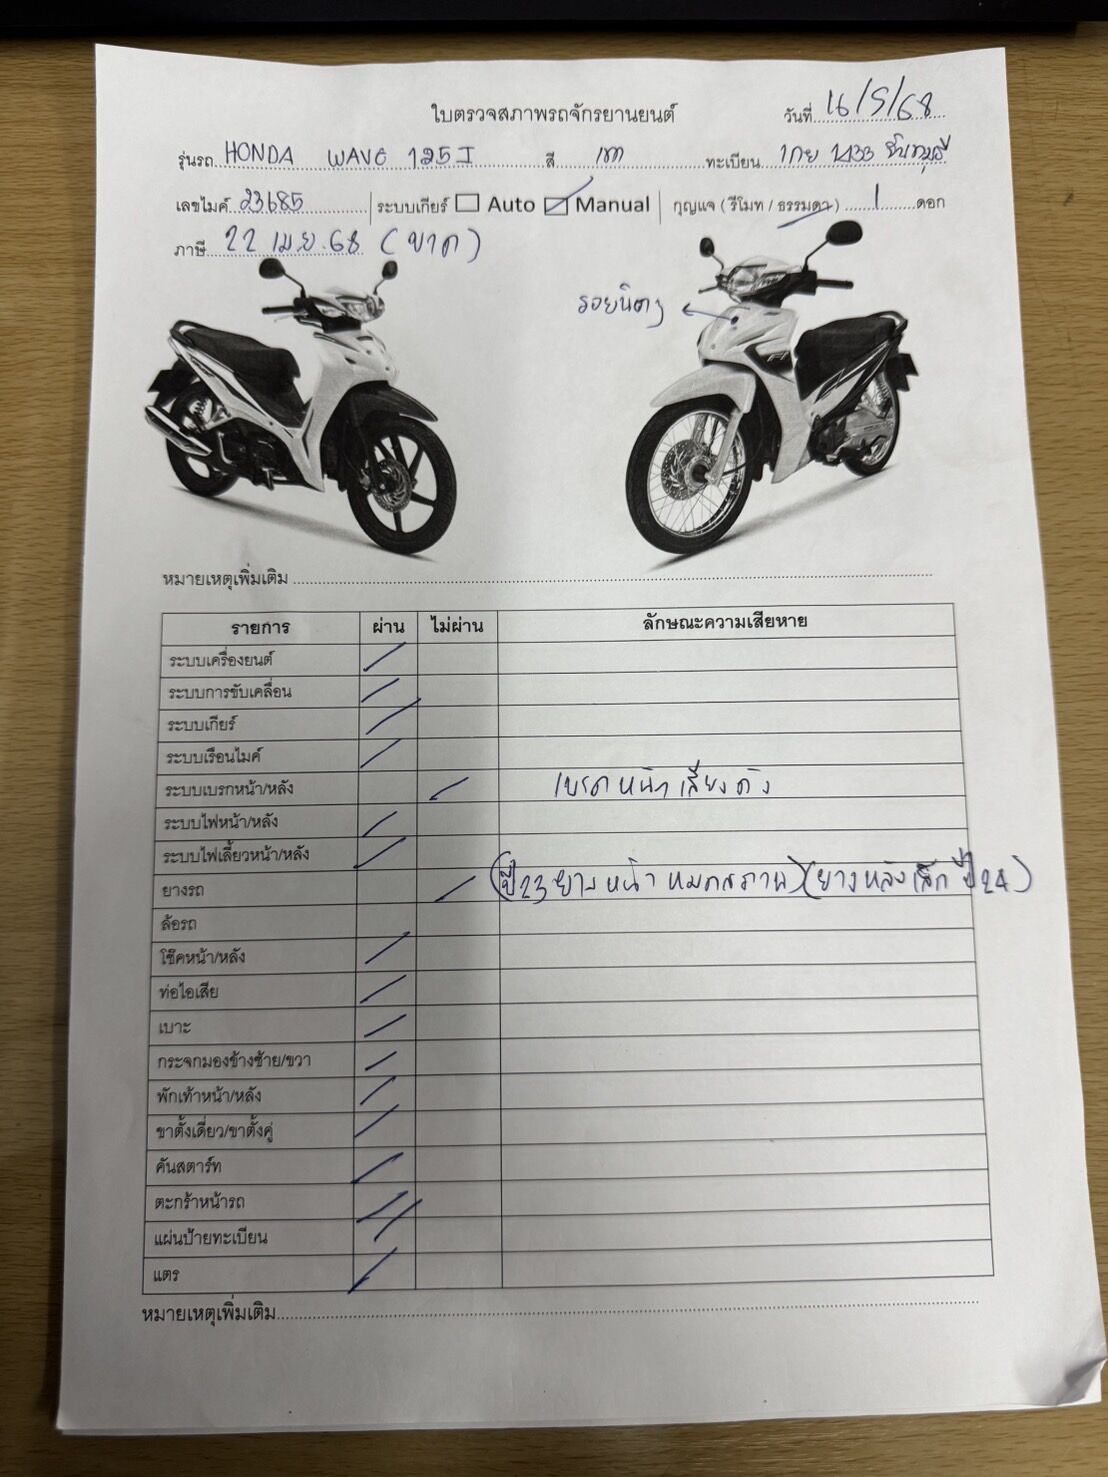 ใบตรวจสภาพรถจักรยานยนต์
วันที่ 16/5/68
รุ่นรถ HONDA WAVE 125I สี เทา ทะเบียน 1กย 1433 จันทบุรี
เลขไมค์ 23685 ระบบเกียร์ Auto Manual กุญแจ (รีโมท / ธรรมดา) 1 ดอก
ภาษี 22 เม.ย. 68 (ขาด)
รอยนิดๆ
หมายเหตุเพิ่มเติม
รายการ ผ่าน ไม่ผ่าน ลักษณะความเสียหาย
ระบบเครื่องยนต์
ระบบการขับเคลื่อน
ระบบเกียร์
ระบบเรือนไมค์
ระบบเบรกหน้า/หลัง เบรคหน้าเสียงดัง
ระบบไฟหน้า/หลัง
ระบบไฟเลี้ยวหน้า/หลัง
ยางรถ (ปี 23 ยางหน้า หมดสภาพ) (ยางหลังเล็ก ปี 24)
ล้อรถ
โช๊คหน้า/หลัง
ท่อไอเสีย
เบาะ
กระจกมองข้างซ้าย/ขวา
พักเท้าหน้า/หลัง
ขาตั้งเดี่ยว/ขาตั้งคู่
คันสตาร์ท
ตะกร้าหน้ารถ
แผ่นป้ายทะเบียน
แตร
หมายเหตุเพิ่มเติม